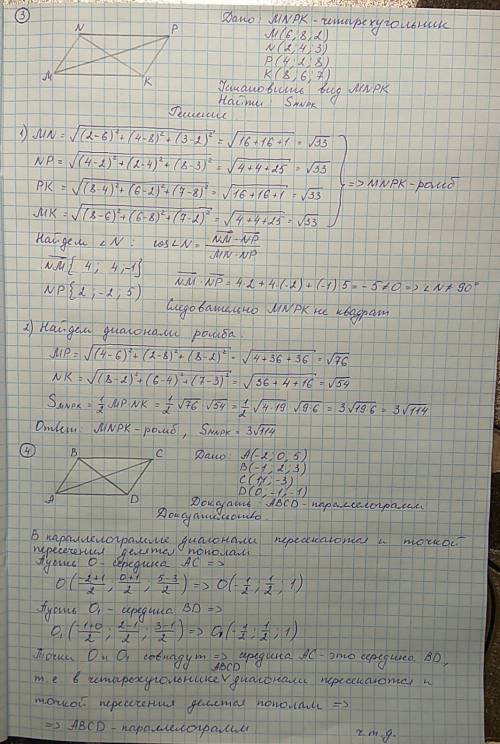 3
Дано: MNPK-четырехугольник
M(6;8;2)
N(2;4;3)
P(4;2;8)
K(8;6;7)
Установить вид MNPK
Найти: S_MNPK
N P
M K
Решение
1) MN = √((2-6)²+(4-8)²+(3-2)²) = √(16+16+1) = √33
NP = √((4-2)²+(2-4)²+(8-3)²) = √(4+4+25) = √33
PK = √((8-4)²+(6-2)²+(7-8)²) = √(16+16+1) = √33
MK = √((8-6)²+(6-8)²+(7-2)²) = √(4+4+25) = √33
=> MNPK-ромб
Найдем ∠N: cos∠N = NM·NP / MN·NP
NM{4; 4;-1}
NP{2;-2;5) NM·NP = 4·2+4·(-2)+(-1)·5 = -5≠0 => ∠N≠90°
Следовательно MNPK не квадрат
2) Найдем диагонали ромба:
MP = √((4-6)²+(2-8)²+(8-2)²) = √(4+36+36) = √76
NK = √((8-2)²+(6-4)²+(7-3)²) = √(36+4+16) = √54
S_MNPK = 1/2 MP·NK = 1/2 √76 √54 = 1/2 √(4·19) √(9·6) = 3√(19·6) = 3√114
Ответ: MNPK-ромб, S_MNPK = 3√114
4
B C
A D
Дано: A(-2;0;5)
B(-1;2;3)
C(1;1;-3)
D(0;-1;-1)
Доказать: ABCD-параллелограмм
Доказательство.
В параллелограмме диагонали пересекаются и точкой
пересечения делятся пополам
Пусть O-середина AC =>
O(-2+1/2; 0+1/2; 5-3/2) => O(-1/2; 1/2; 1)
Пусть O₁-середина BD =>
O₁(-1+0/2; 2-1/2; 3-1/2) => O₁(-1/2; 1/2; 1)
Точки O и O₁ совпадут => середина AC-это середина BD,
т.е в четырехугольнике ABCD диагонали пересекаются и
точкой пересечения делятся пополам =>
=> ABCD-параллелограмм ч.т.д.